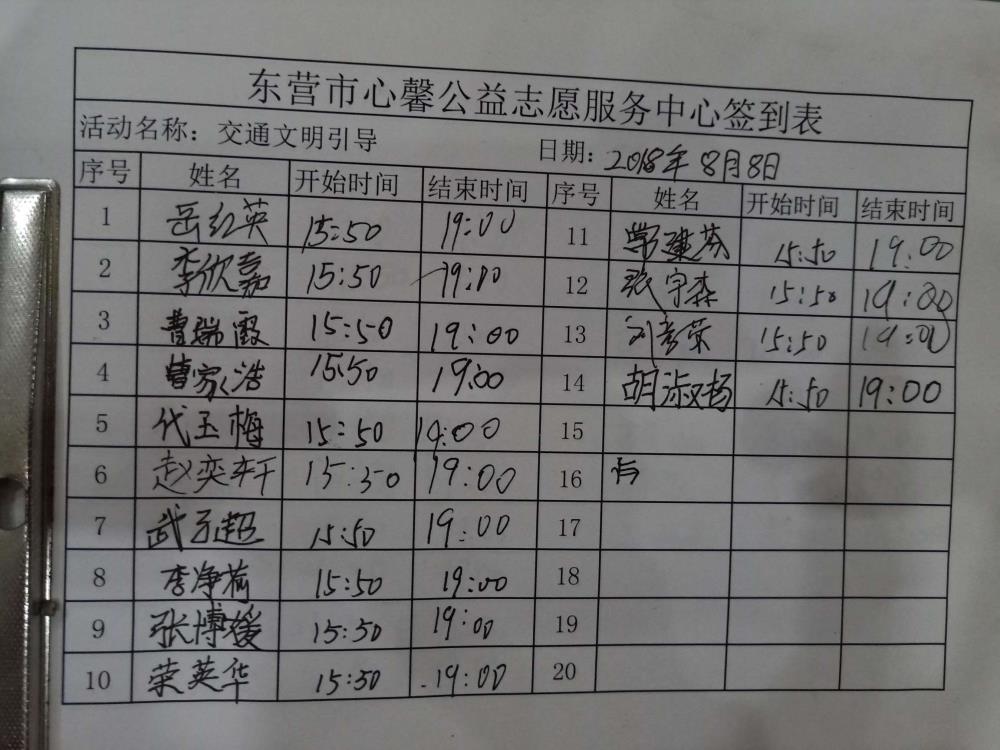 东营市心馨公益志愿服务中心签到表
活动名称：交通文明引导 日期：2018年8月8日
序号 姓名 开始时间 结束时间 序号 姓名 开始时间 结束时间
1 岳红英 15:50 19:00 11 常建芬 15:50 19:00
2 李欣嘉 15:50 19:00 12 张宇森 15:50 19:00
3 曹瑞霞 15:50 19:00 13 刘音荣 15:50 19:00
4 曹家浩 15:50 19:00 14 胡淑杨 15:50 19:00
5 代玉梅 15:50 19:00 15
6 赵奕轩 15:50 19:00 16
7 武子超 15:50 19:00 17
8 李净荷 15:50 19:00 18
9 张博媛 15:50 19:00 19
10 荣英华 15:50 19:00 20